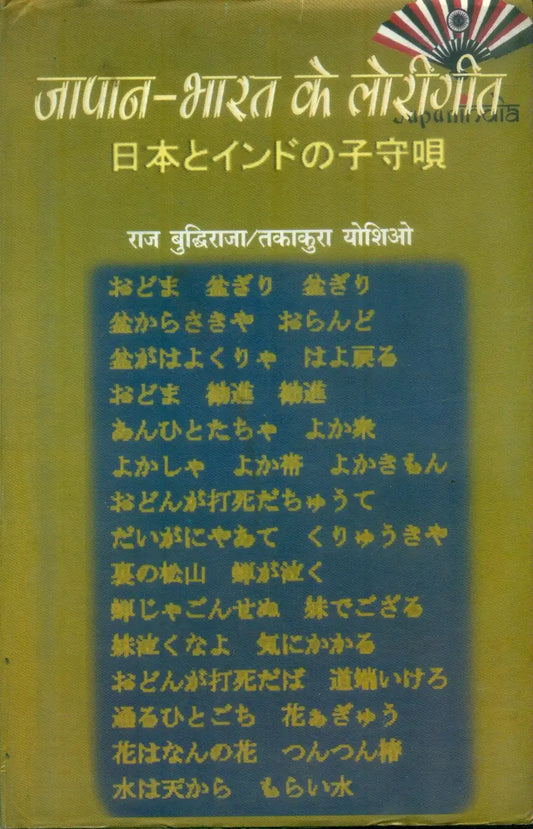 जापान-भारत के लोरीगीत
Japanindia
日本とインドの子守唄
राज बुद्धिराजा/तकाकुरा योशिओ
おどま 盆ぎり 盆ぎり
盆からさきや おらんど
盆がはよくりゃ はよ戻る
おどま 勧進 勧進
あんひとたちゃ よか衆
よかしゃ よか帯 よかきもん
おどんが打死だちゅうて
だいがにやあて くりゅうきや
裏の松山 蝉が泣く
蝉じゃごんせぬ 妹でござる
妹泣くなよ 気にかかる
おどんが打死だば 道端いけろ
通るひとごち 花ぁぎゅう
花はなんの花 つんつん椿
水は天から もらい水